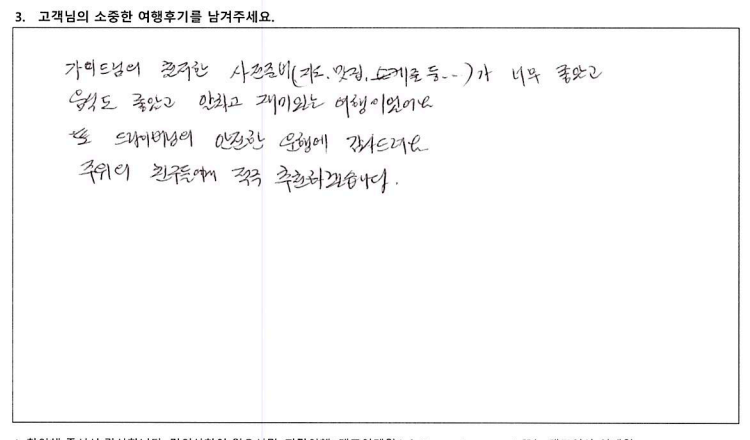 3. 고객님의 소중한 여행후기를 남겨주세요.
가이드님의 철저한 사전준비(지도, 맛집, 스케줄 등...)가 너무 좋았고
음식도 좋았고 알차고 재미있는 여행이었어요
또 드라이버님의 안전한 운행에 감사드려요
주위의 친구들에게 적극 추천하겠습니다.